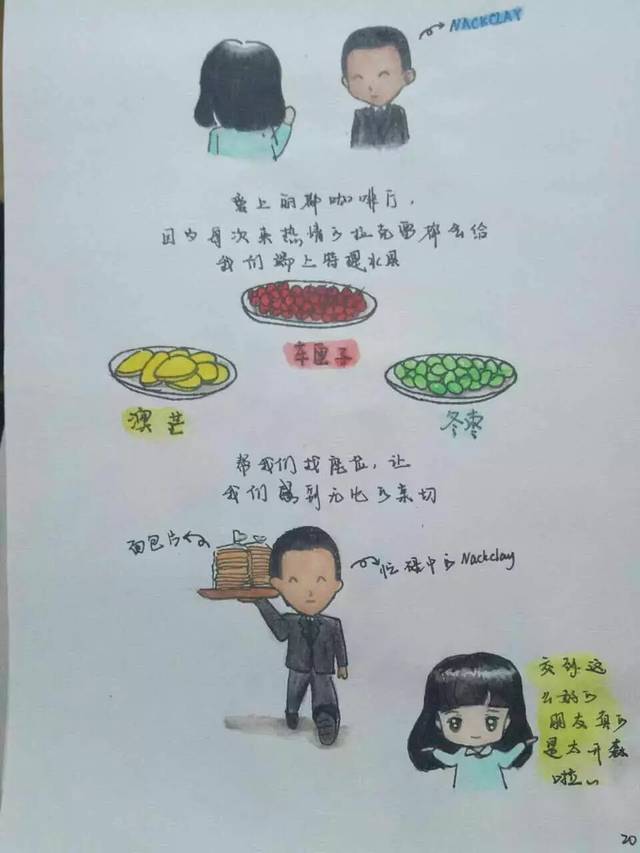 NACKCLAY
爱上丽都咖啡厅,
因为每次来热情的拉克雷都会给
我们端上特调水果
车厘子
澳芒
冬枣
帮我们找座位,让
我们感到无比的亲切
面包片
忙碌中的Nackclay
交到这
么好的
朋友真的
是太开森
啦
20